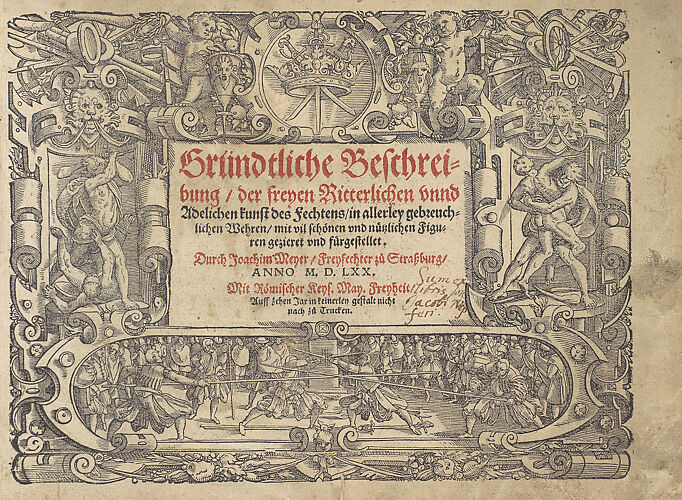 Gründtliche Beschrei-
bung / der freyen Ritterlichen vnnd
Adelichen kunst des Fechtens / in allerley gebreuch-
lichen Wehren / mit vil schönen vnd nützlichen Figu-
ren gezieret vnd fürgestellet.
Durch Joachim Meyer / Freyfechter zů Straßburg /
ANNO M. D. LXX.
Mit Römischer Keys. May. Freyheit /
Auff zehen Jar in keinerley gestalt nicht
nach zů Trucken.
Sum ex
libris
Jacobi